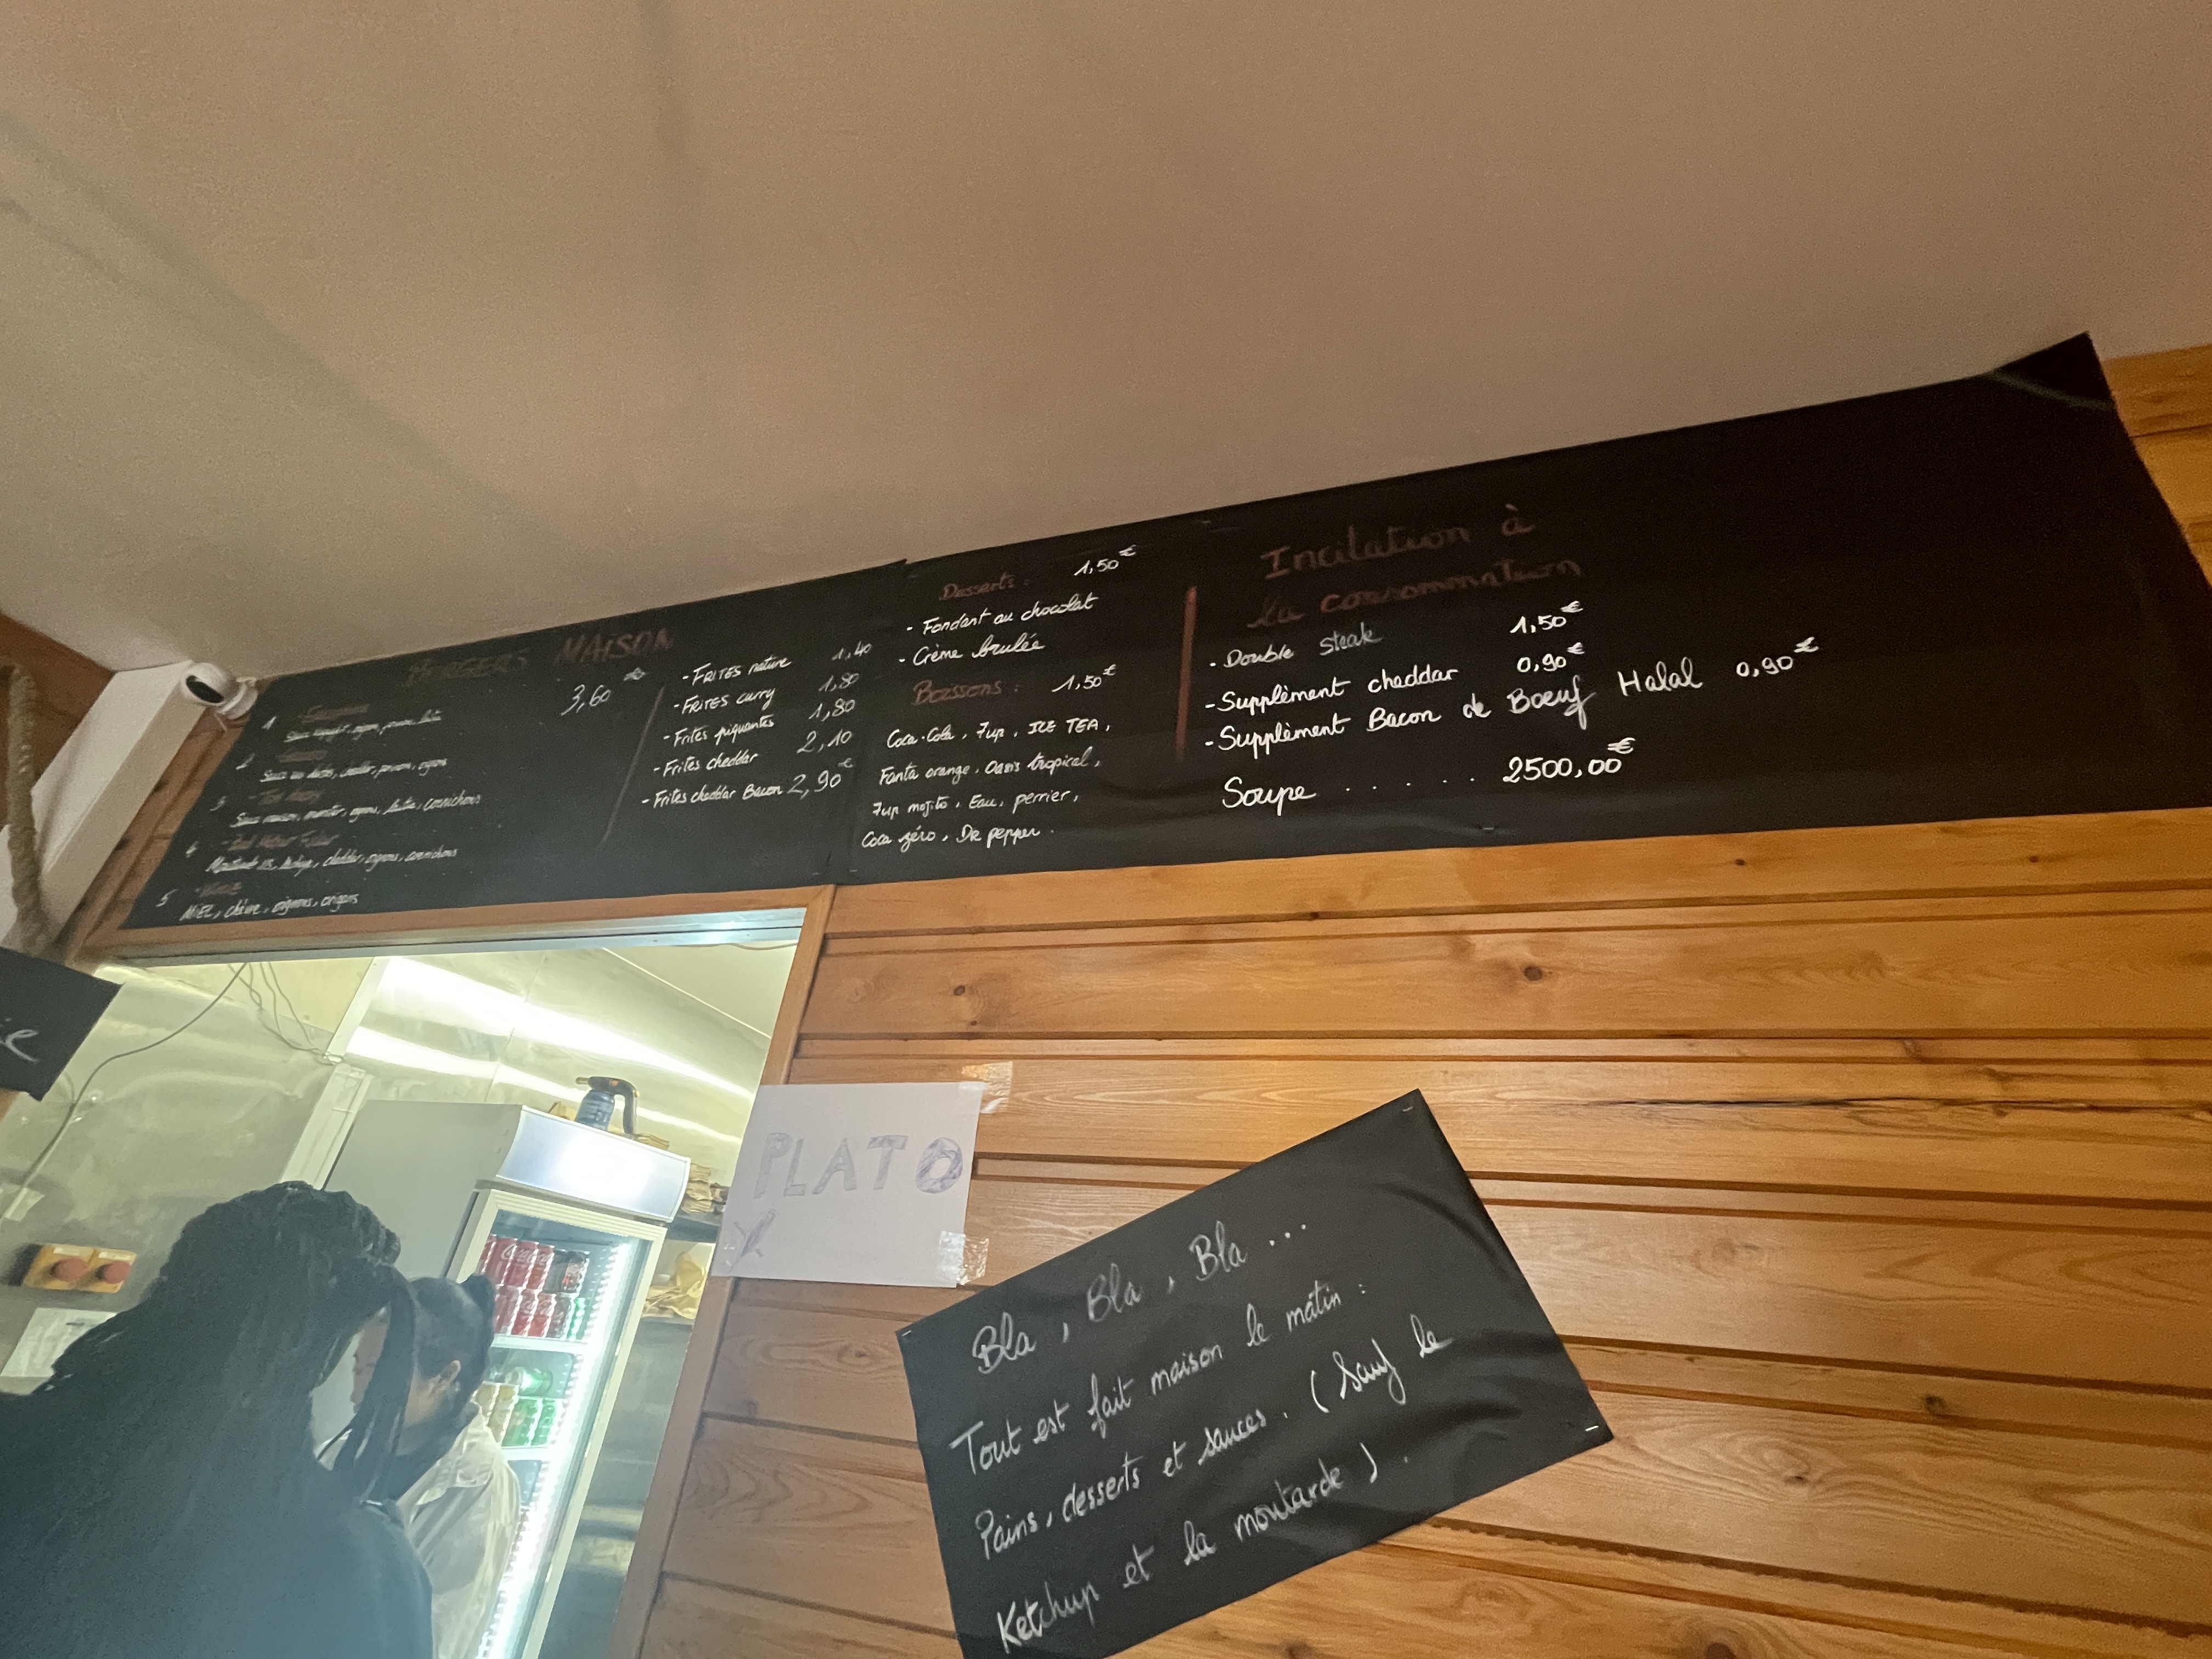 BURGERS MAISON
3,60 €
1
2
Sauce au choix, cheddar, poivrons, oignons
3
Sauce maison, oignons, laitue, cornichons
4
cheddar, oignons, cornichons
5
MIEL, chèvre, oignons, origan
- FRITES nature 1,40
- FRITES curry 1,80
- Frites piquantes 1,80
- Frites cheddar 2,10
- Frites cheddar Bacon 2,90€
Desserts : 1,50€
- Fondant au chocolat
- Crème brulée
Boissons : 1,50€
Coca-Cola, 7up, ICE TEA,
Fanta orange, Oasis tropical,
7up mojito, Eau, perrier,
Coca zéro, DR pepper.
Incitation à
la consommation
- Double Steak 1,50€
- Supplèment cheddar 0,90€
- Supplèment Bacon de Boeuf Halal 0,90€
Soupe . . . . . 2500,00€
PLATO
Bla, Bla, Bla ...
Tout est fait maison le matin :
Pains, desserts et sauces. (Sauf le
Ketchup et la moutarde).